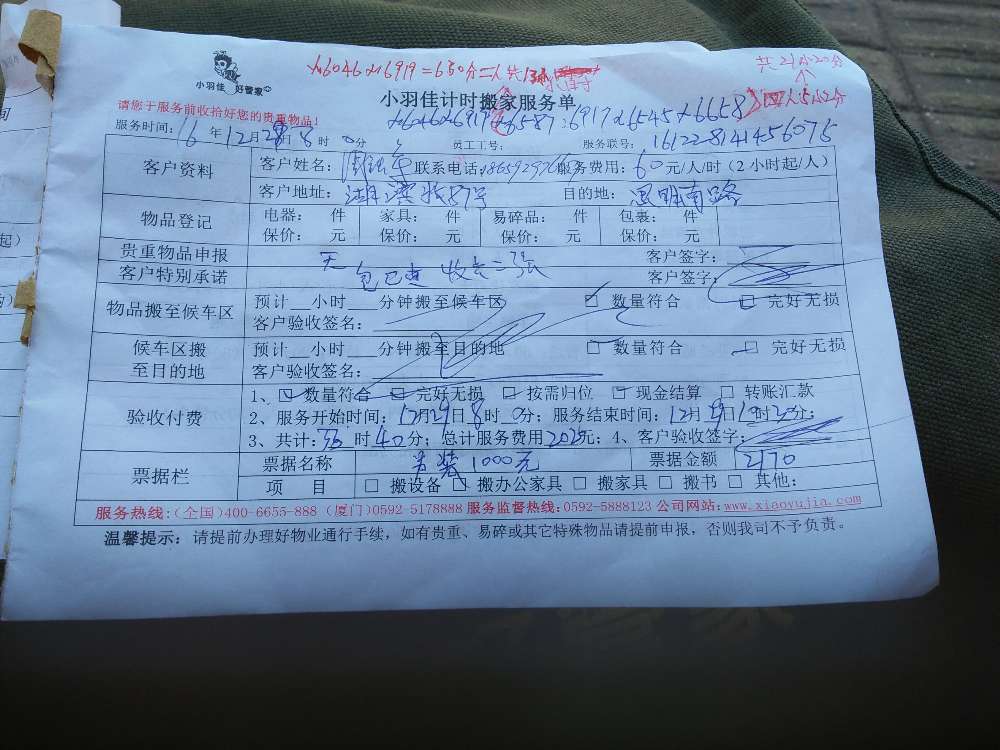 x6046x6919=650分二人共13小
共21小20分
小羽佳 好管家
请您于服务前收拾好您的贵重物品!
小羽佳计时搬家服务单
x6046x6919x6587:6917x6545x6658
服务时间: 16年12月29日8时0分 员工工号: 服务联号: 161228141456075
客户资料 客户姓名: 联系电话: 服务费用:60元/人/时(2小时起/人)
客户地址: 湖滨 87号 目的地: 思明南路
物品登记 电器: 件 家具: 件 易碎品: 件 包裹: 件
保价: 元 保价: 元 保价: 元 保价: 元
贵重物品申报 无 客户签字:
客户特别承诺 包已 收 二张 客户签字:
物品搬至候车区 预计__小时___分钟搬至候车区 □ 数量符合 □ 完好无损
客户验收签名:
候车区搬至目的地 预计__小时___分钟搬至目的地 □ 数量符合 □ 完好无损
客户验收签名:
验收付费 1、□ 数量符合 □ 完好无损 □ 按需归位 □ 现金结算 □ 转账汇款
2、服务开始时间:12月29日8时0分; 服务结束时间:12月29日1时 分;
3、共计: 时40分; 总计服务费用 元; 4、客户验收签字:
票据栏 票据名称 1000元 票据金额 2170
项 目 □ 搬设备 □ 搬办公家具 □ 搬家具 □ 搬书 □ 其他:
服务热线:(全国)400-6655-888 (厦门)0592-5178888 服务监督热线:0592-5888123 公司网站:www.xiaoyujia.com
温馨提示: 请提前办理好物业通行手续,如有贵重、易碎或其它特殊物品请提前申报,否则我司不予负责。